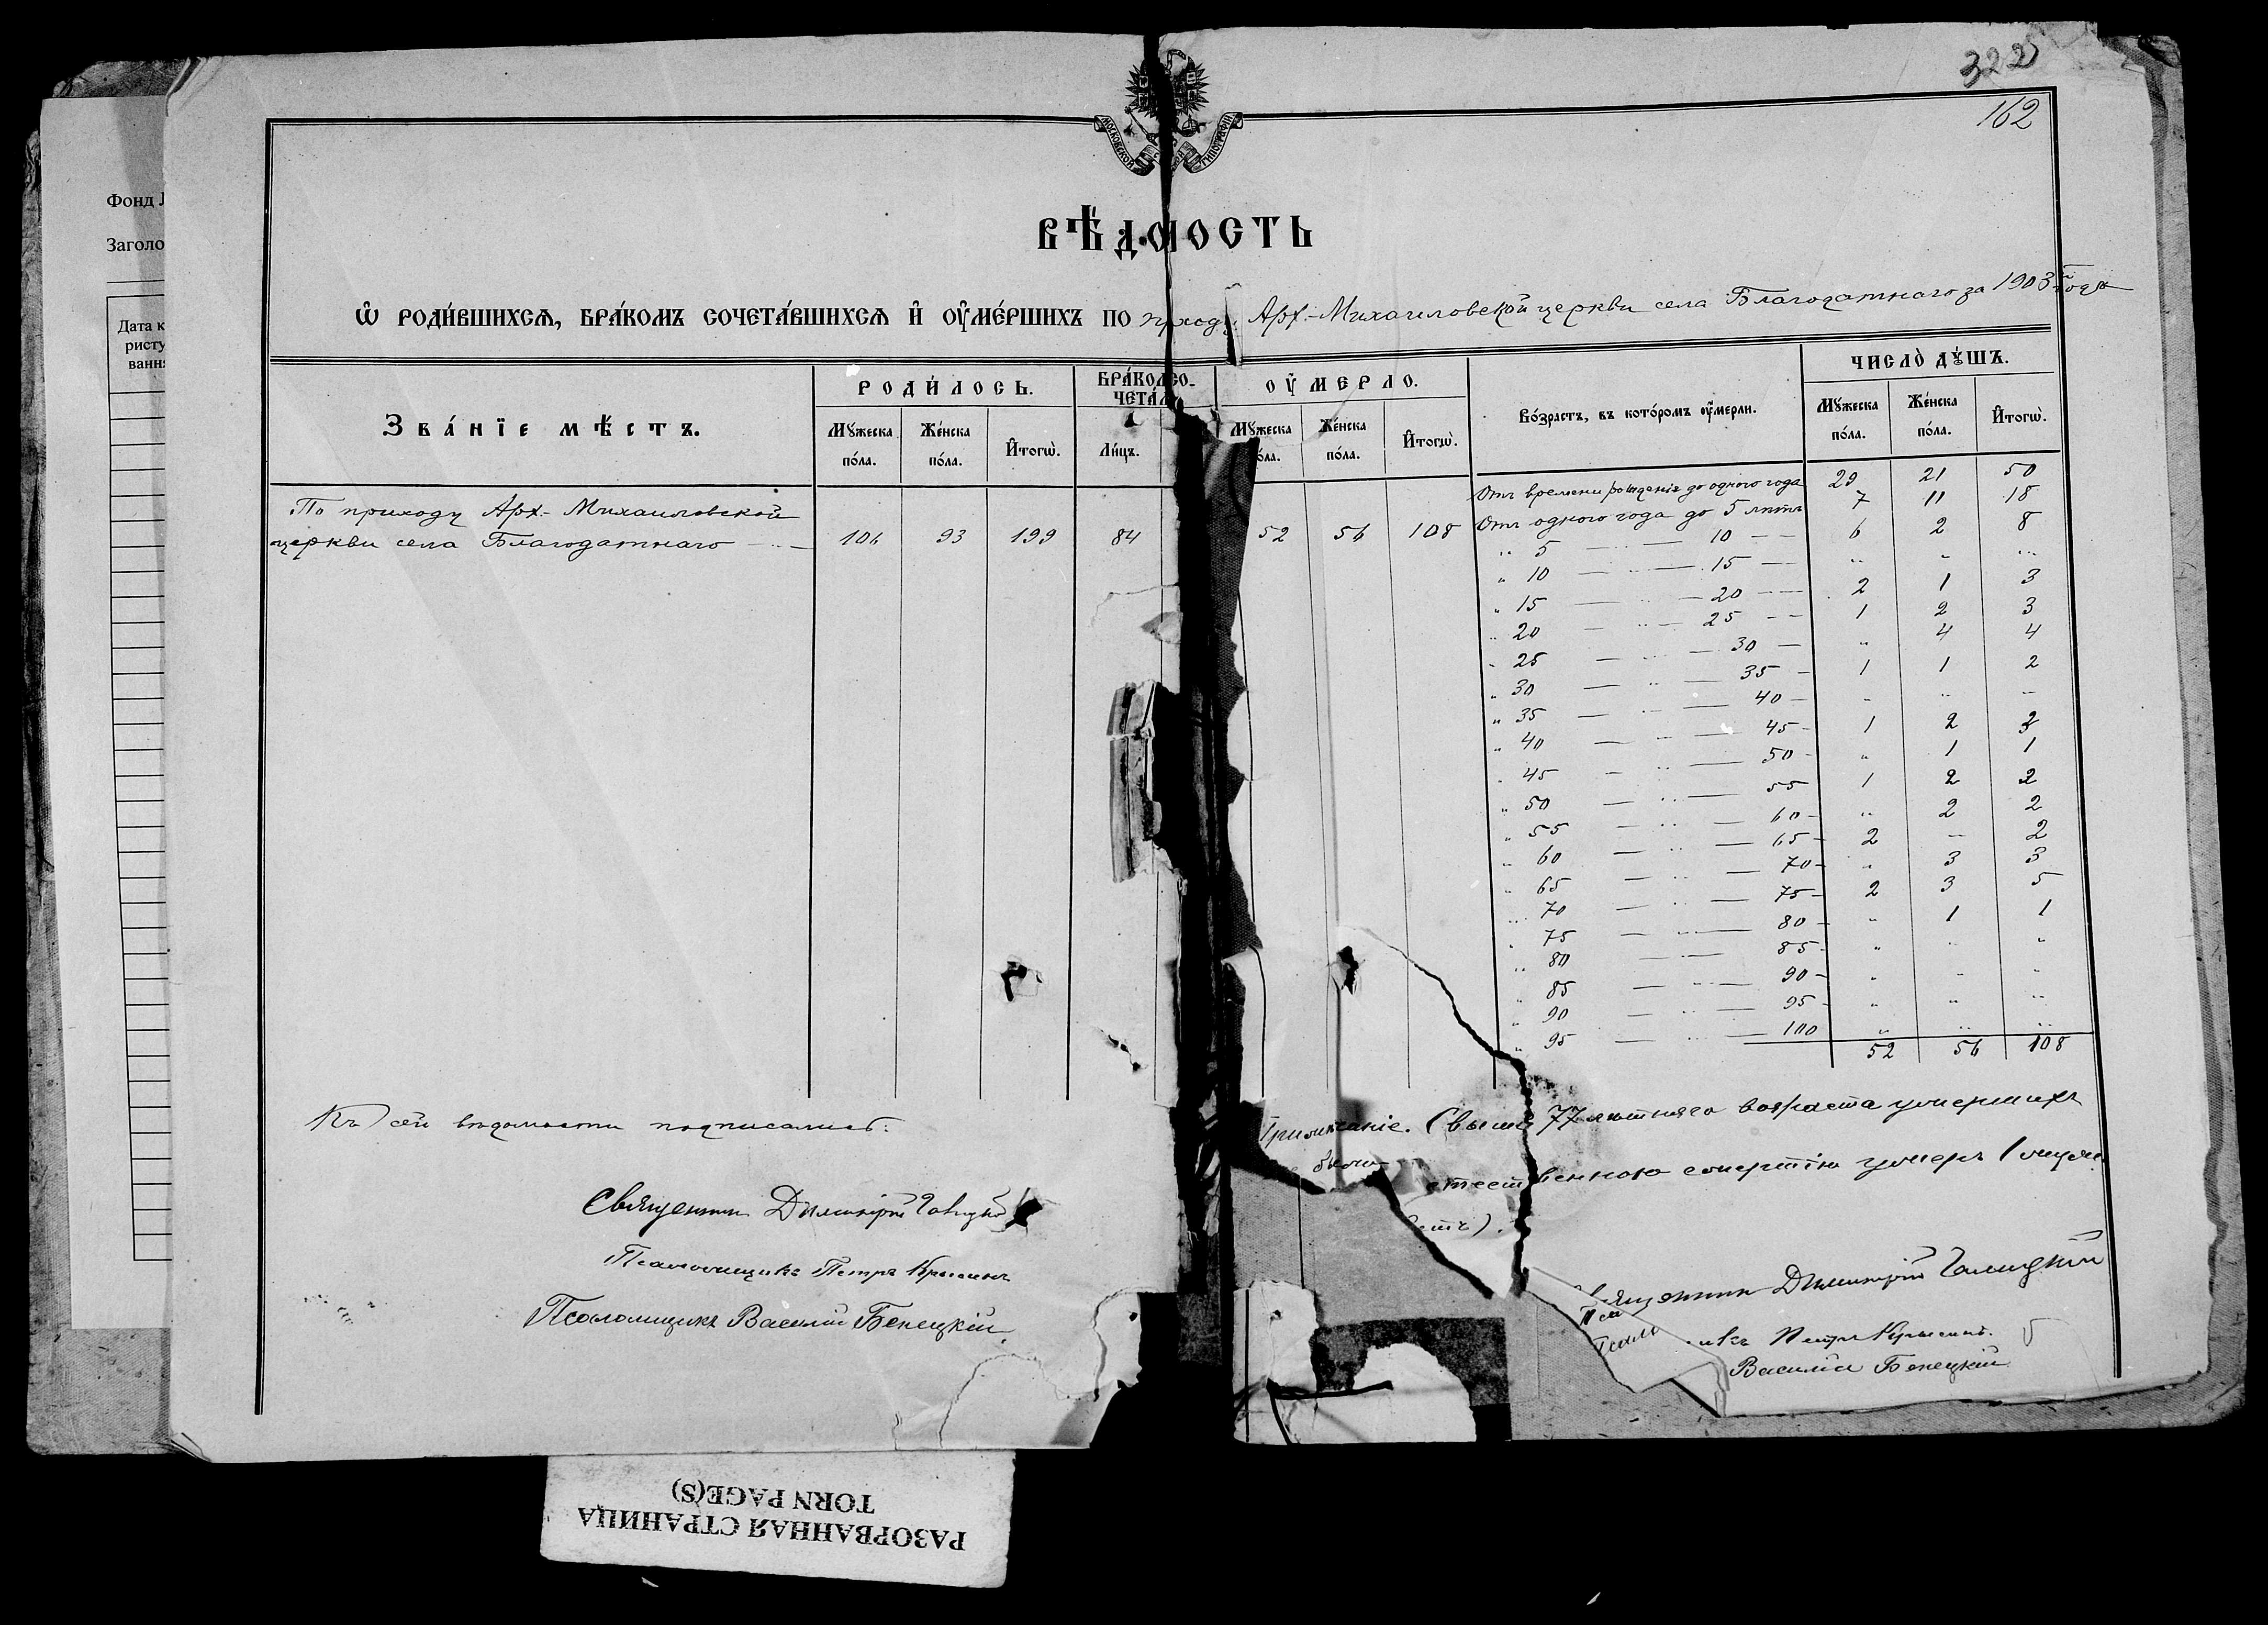 3225
162
Фонд
Заголо
Дата к
ристу
вання
МОСКОВСКОЙ
ТИПОГРАФІИ
ВѢ́ДОМОСТЬ
Ѡ҆ РОДИ́ВШИХСѦ, БРА́КОМЪ СОЧЕТА́ВШИХСѦ И҆ ОУ҆МЕ́РШИХЪ ПО приходу Арх.-Михаиловской церкви села Благодатнаго за 1903й годъ
Зва́нїе мѣ́стъ.
РОДИ́ЛОСЬ.
Мꙋжеска по́ла.
Же́нска по́ла.
И҆тогѡ̀.
БРА́КОМЪ СО-
ЧЕТА́Л
Ли́цъ.
ОУ҆МЕРЛО.
Мꙋжеска по́ла.
Же́нска по́ла.
И҆тогѡ̀.
Во́зрастъ, въ кото́ромъ оу҆мерли.
ЧИСЛО̀ ДꙊ́ШЪ.
Мꙋжеска по́ла.
Же́нска по́ла.
И҆тогѡ̀.
По приходу Арх.- Михаиловской
церкви села Благодатнаго — 106 93 199 84 52 56 108
Отъ времени рожденія до одного года 29 21 50
Отъ одного года до 5 лѣтъ 7 11 18
" 5 — " — 10 — 6 2 8
" 10 — " — 15 — " " "
" 15 — " — 20 — 2 1 3
" 20 — " — 25 — 1 2 3
" 25 — " — 30 — " 4 4
" 30 — " — 35 — 1 1 2
" 35 — " — 40 — " " "
" 40 — " — 45 — 1 2 3
" 45 — " — 50 — " 1 1
" 50 — " — 55 1 2 2
" 55 — " — 60 — " 2 2
" 60 — " — 65 — 2 — 2
" 65 — " — 70 — " 3 3
" 70 — " — 75 — 2 3 5
" 75 — " — 80 — " 1 1
" 80 — " — 85 — " " "
" 85 — " — 90 — " " "
" 90 — " — 95 — " " "
" 95 — " — 100 " " "
52 56 108
Къ сей вѣдомости подписались:
Священникъ Димитрій Галицкій
Псаломщикъ Петръ
Псаломщикъ Василій Бенецкій.
Примѣчаніе. Свыше 77 лѣтняго возраста умершихъ
было
естественною смертію умеръ 1
Священникъ Димитрій Галицкій
Пса
Псало
икъ Петръ
Василій Бенецкій
РАЗОРВАННАЯ СТРАНИЦА
TORN PAGE(S)